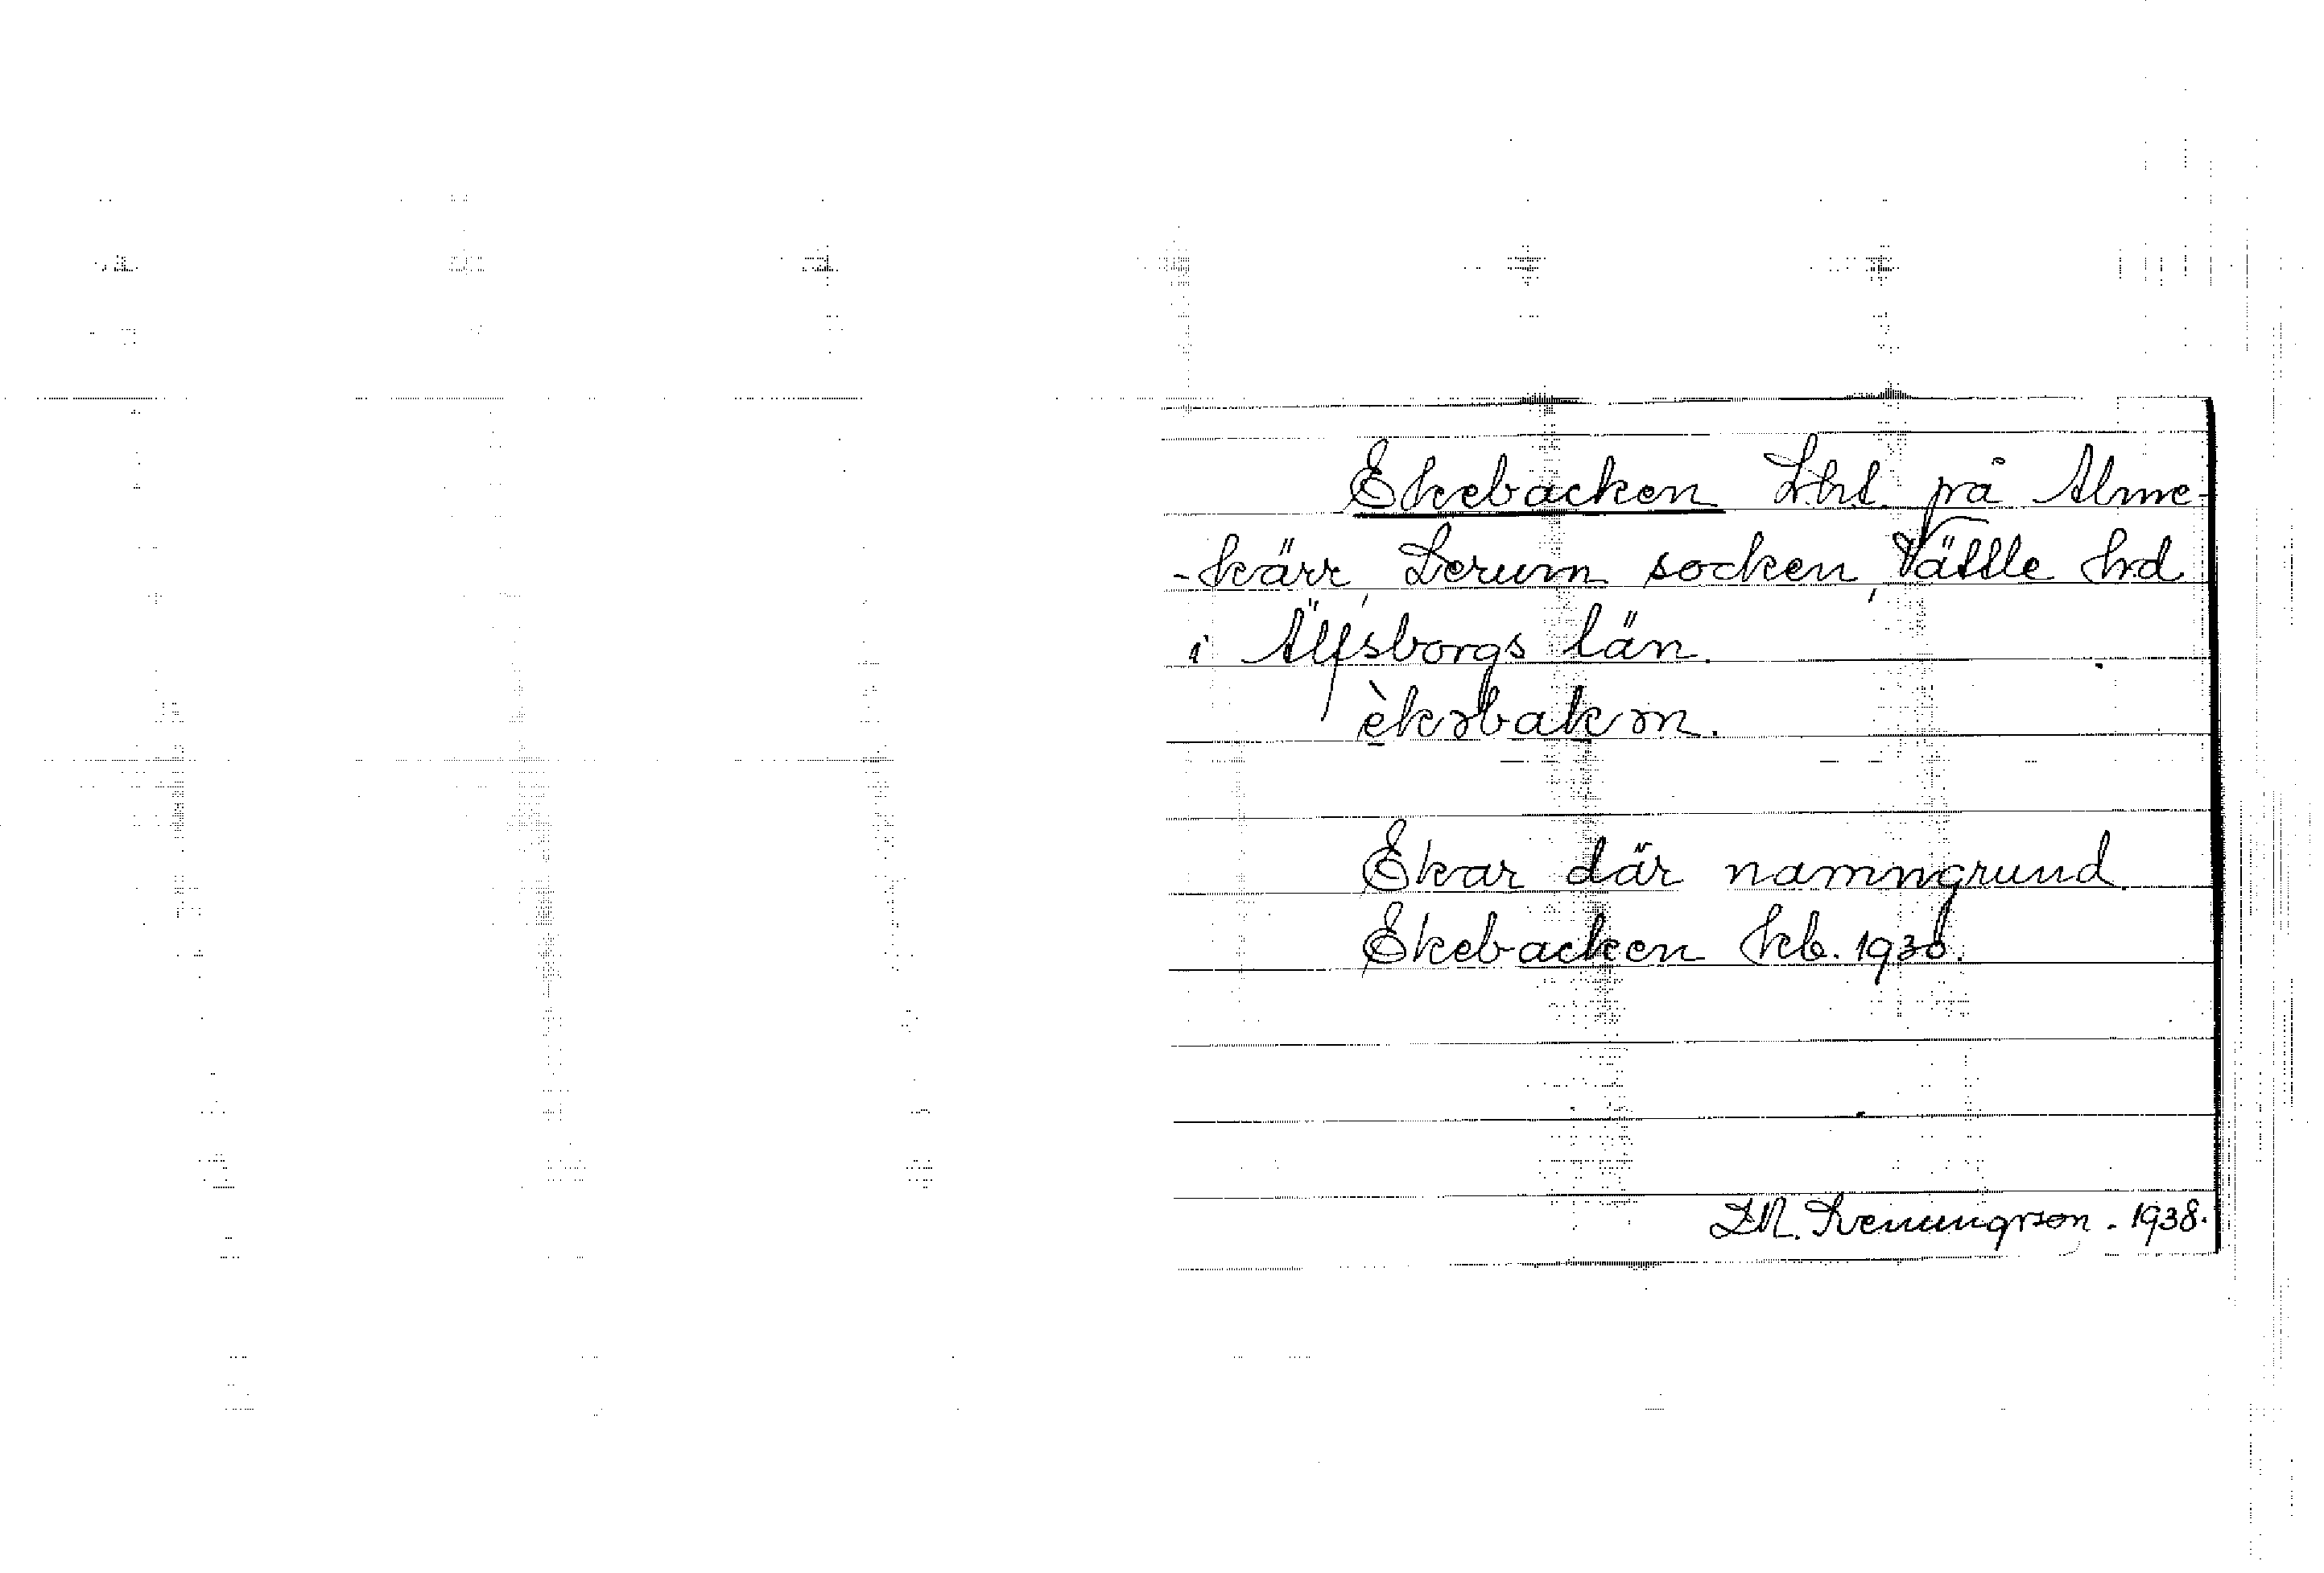 Ekebacken Lht på Alme-
-kärr, Lerum socken, Vättle hrd
i Älfsborgs län.
èkəbakən.
Ekar där namngrund.
Ekebacken kb. 1930.
1938.